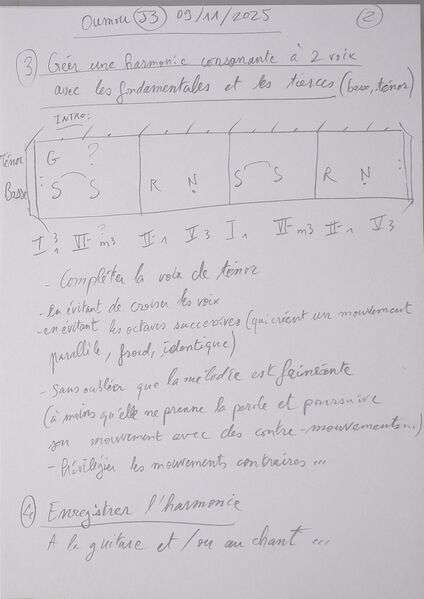 Oumou J3 09/11/2025 2
3 Créer une harmonie consonante à 2 voix
avec les fondamentales et les tierces (basse, ténor)
INTRO:
Ténor G ?
Basse S S R Ṇ S S R Ṇ
I 3 1 VI- ? m3 II- 1 V 3 I 1 VI- m3 II- 1 V 3
- Compléter la voix de ténor
- en évitant de croiser les voix
- en évitant les octaves successives (qui créent un mouvement
parallèle, froid, identique)
- Sans oublier que la mélodie est fainéante
(à moins qu'elle ne prenne la parole et poursuive
son mouvement avec des contre-mouvements...)
- Privilégier les mouvements contraires...
4 Enregistrer l'harmonie
A la guitare et/ou au chant...